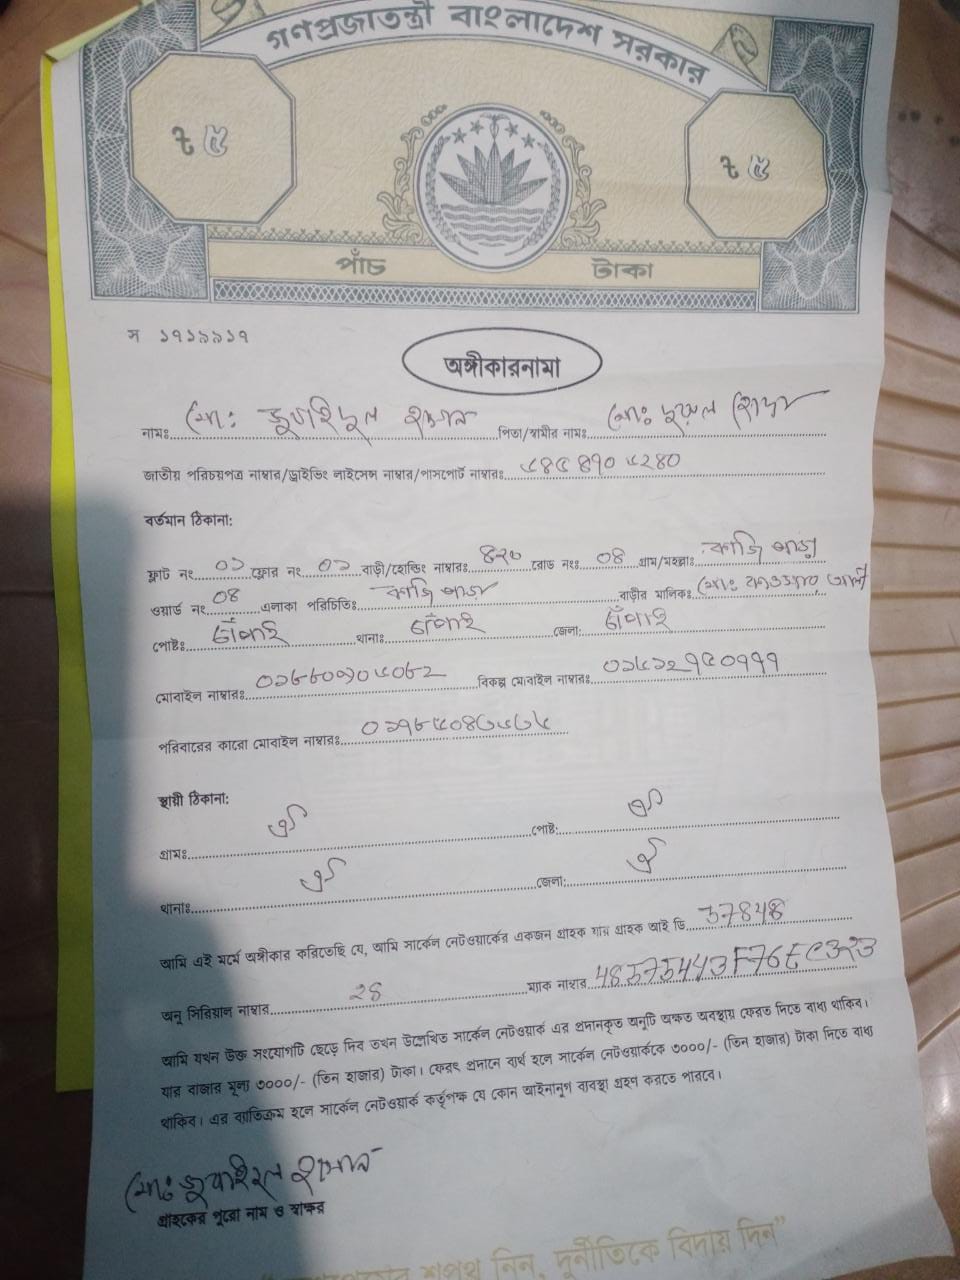 গণপ্রজাতন্ত্রী বাংলাদেশ সরকার
৳ ৫ ৳ ৫
পাঁচ টাকা
স ১৭১৯৯১৭
অঙ্গীকারনামা
নামঃ মোঃ পিতা/স্বামীর নামঃ মোঃ
জাতীয় পরিচয়পত্র নাম্বার/ড্রাইভিং লাইসেন্স নাম্বার/পাসপোর্ট নাম্বারঃ
বর্তমান ঠিকানা:
ফ্লাট নং ০১ ফ্লোর নং ০১ বাড়ী/হোল্ডিং নাম্বারঃ ৪২০ রোড নংঃ ০৪ গ্রাম/মহল্লাঃ কাজি পাড়া
ওয়ার্ড নং ০৪ এলাকা পরিচিতিঃ কাজি পাড়া বাড়ীর মালিকঃ মোঃ আলী
পোষ্টঃ থানাঃ জেলা:
মোবাইল নাম্বারঃ বিকল্প মোবাইল নাম্বারঃ
পরিবারের কারো মোবাইল নাম্বারঃ
স্থায়ী ঠিকানা:
গ্রামঃ ঐ পোষ্ট: ঐ
থানাঃ ঐ জেলা: ঐ
আমি এই মর্মে অঙ্গীকার করিতেছি যে, আমি সার্কেল নেটওয়ার্কের একজন গ্রাহক যার গ্রাহক আই ডি 37848
অনু সিরিয়াল নাম্বার ২৪ ম্যাক নাম্বার
আমি যখন উক্ত সংযোগটি ছেড়ে দিব তখন উল্লেখিত সার্কেল নেটওয়ার্ক এর প্রদানকৃত অনুটি অক্ষত অবস্থায় ফেরত দিতে বাধ্য থাকিব।
যার বাজার মূল্য ৩০০০/- (তিন হাজার) টাকা। ফেরৎ প্রদানে ব্যর্থ হলে সার্কেল নেটওয়ার্ককে ৩০০০/- (তিন হাজার) টাকা দিতে বাধ্য
থাকিব। এর ব্যতিক্রম হলে সার্কেল নেটওয়ার্ক কর্তৃপক্ষ যে কোন আইনানুগ ব্যবস্থা গ্রহণ করতে পারবে।
মোঃ
গ্রাহকের পুরো নাম ও স্বাক্ষর
শপথ নিন, দুর্নীতিকে বিদায় দিন"